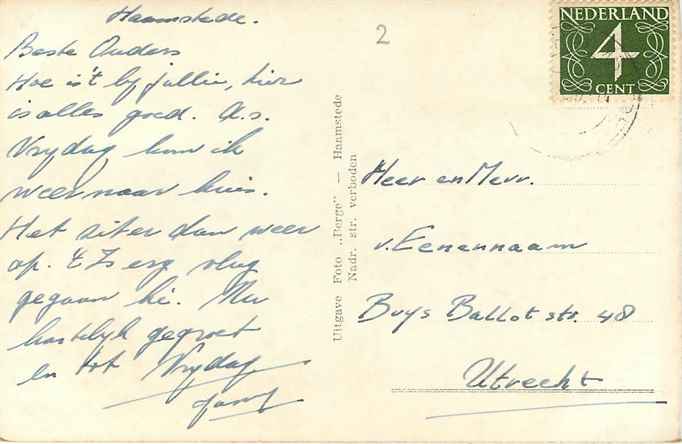 Haamstede.
Beste Ouders
Hoe is't by jullie, hier
is alles goed. A.s.
Vrydag kom ik
weer naar huis.
Het zit er dan weer
op. 't Is erg vlug
gegaan hè. Nu
hartelyk gegroet
en tot Vrydag
2
NEDERLAND
4
CENT
Uitgave Foto „Berge" — Haamstede
Nadr. str. verboden
Heer en Mevr.
v. Eenennaam
Buys Ballot str. 48
Utrecht